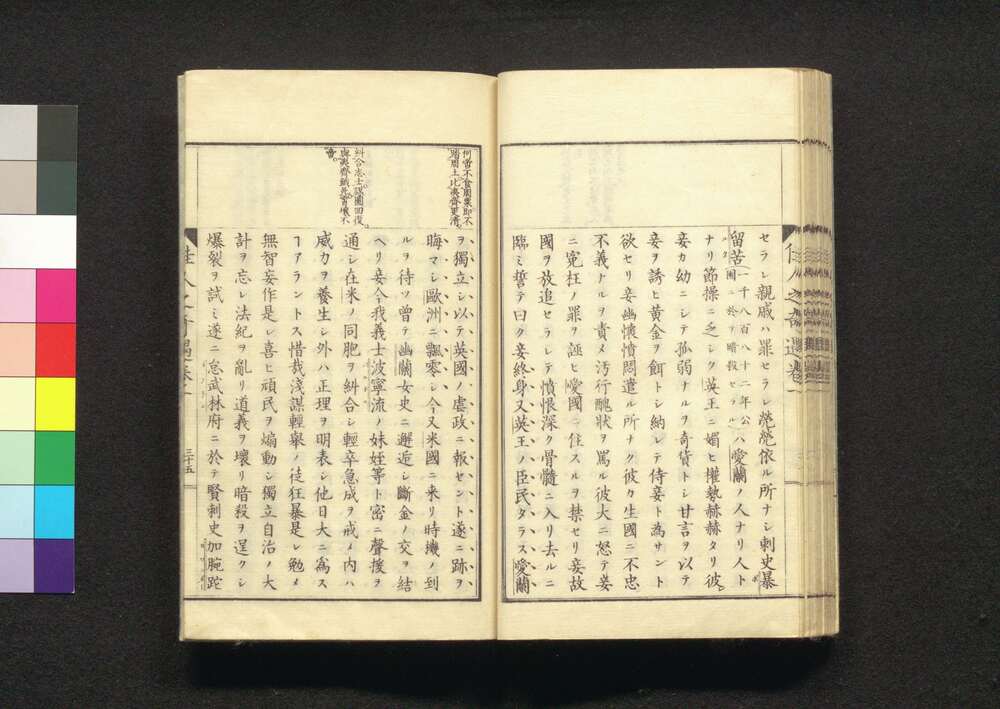 セラレ親戚ハ罪セラレ煢煢依ル所ナシ刺史暴
留苦一千八百八十二年公ハ愛蘭ノ人ナリ人ト
園ニ於テ暗殺セラル
ナリ節操ニ乏シク英王ニ媚ヒ權勢赫赫タリ彼
妾カ幼ニシテ孤弱ナルヲ奇貨トシ甘言ヲ以テ
妾ヲ誘ヒ黄金ヲ餌トシ納レテ侍妾ト為サント
欲セリ妾幽懷憤悶遣ル所ナク彼カ生國ニ不忠
不義ナルヲ責メ汚行醜狀ヲ罵ル彼大ニ怒テ妾
ニ寃枉ノ罪ヲ誣ヒ愛國ニ住スルヲ禁セリ妾故
國ヲ放追セラレテ憤恨深ク骨髓ニ入リ去ルニ
臨ミ誓テ曰ク妾終身又英王ノ臣民タラス愛蘭
佳人之奇遇卷一
何啻不食周粟即不
踏周土比夷齊更清
糾合志士謀圖回復
與夷齊餓死首壤不
ヲ獨立シ以テ英國ノ虐政ニ報セント遂ニ跡ヲ
晦マシ歐洲ニ飄零シ今又米國ニ来リ時機ノ到
ルヲ待ツ曾テ幽蘭女史ニ邂逅シ斷金ノ交ヲ結
ヘリ妾今我義士波寧流ノ妹姪等ト密ニ聲援ヲ
通シ在米ノ同胞ヲ糾合シ輕卒急成ヲ戒メ内ハ
威力ヲ養生シ外ハ正理ヲ明表シ他日大ニ為ス
ヿアラントス惜哉淺謀輕舉ノ徒狂暴是レ勉メ
無智妄作是レ喜ヒ頑民ヲ煽動シ獨立自治ノ大
計ヲ忘レ法紀ヲ亂リ道義ヲ壞リ暗殺ヲ逞クシ
爆裂ヲ試ミ遂ニ怠武林府ニ於テ賢刺史加腕陀
佳人之奇遇卷一
三十五